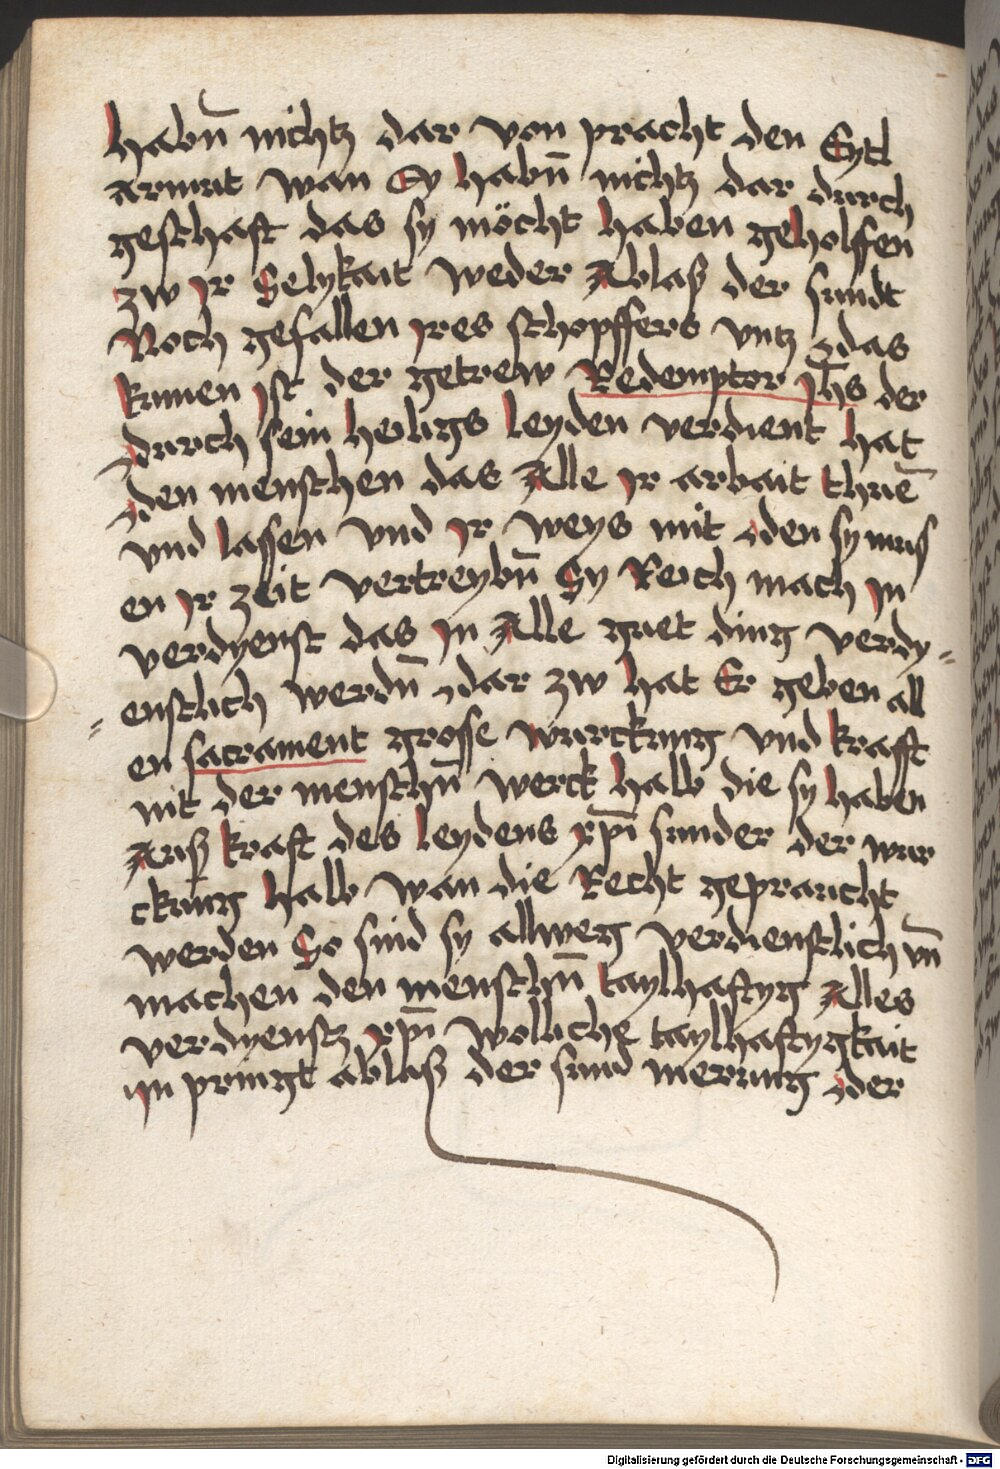 habn̄ nichtz dar von pracht den Eytl
armut wan Sy habn̄ nichtz dar durch
geschaft das sy möcht haben geholffen
zw Ir Selykait weder Ablaß der sundt
Noch gefallen Ires schopffers vntz das
kumen Ist der getrew Redemptor Jh̄s der
durch sein heiligs leyden verdient hat
den menschen das Alle Ir arbait thuē
vnd lassen vnd Ir weys mit den sy mus
en Ir zeit vertreybn̄ Sy Reich mach In
verdyenst das In Alle guet ding verdy=
=enstlich werdn̄ dar zw hat Er geben all
en sacrament grosse wurckung vnd krafft
nit der menschn̄ werck halb die sy haben
Auß kraft des leydens xp̄i sunder der wur
ckung halb wan die Recht gepraucht
werden So sind sy allweg verdienstlich vn̄
machen den menschn̄ taylhaftyg Alles
verdyenstz xp̄i Wolliche taylhaftygkait
im pringt ablaß der sund merung der
Digitalisierung gefördert durch die Deutsche Forschungsgemeinschaft - DFG